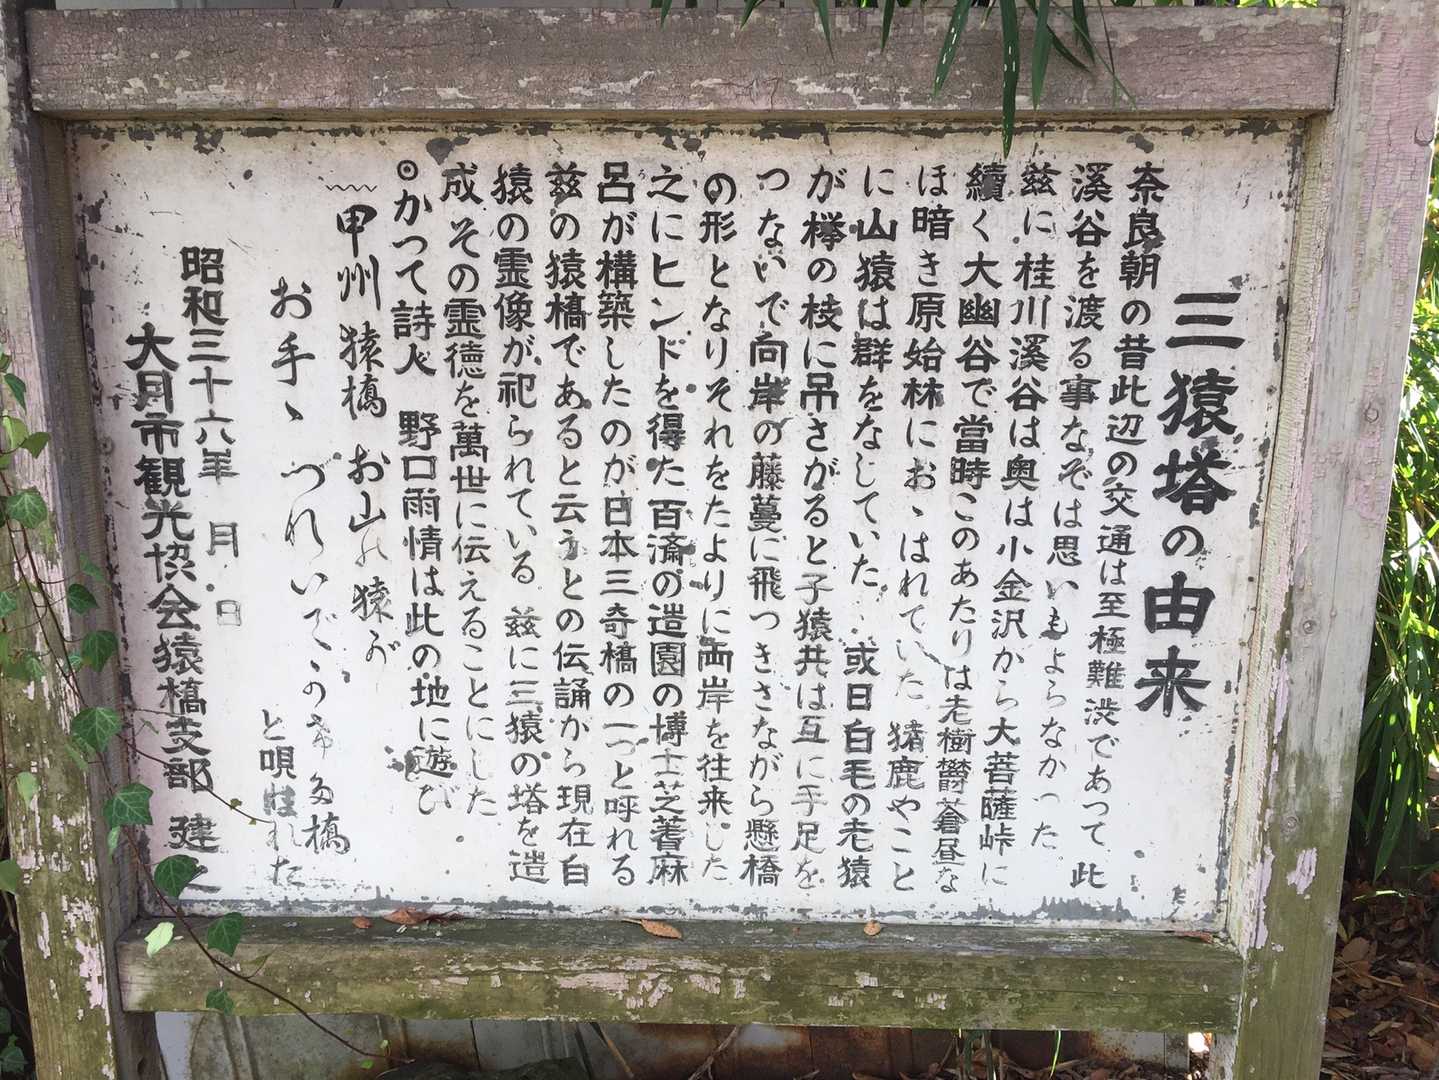 三猿塔の由来
奈良朝の昔此辺の交通は至極難渋であつて 此
溪谷を渡る事なぞは思いもよらなかった
玆に桂川溪谷は奥は小金沢から大菩薩峠に
續く大幽谷で當時このあたりは老樹欝蒼昼な
ほ暗き原始林におゝはれていた 猪鹿やこと
に山猿は群をなしていた 或日白毛の老猿
が欅の枝に吊さがると子猿共は互に手足を
つないで向岸の藤蔓に飛つきさながら懸橋
の形となりそれをたよりに両岸を往来した
之にヒンドを得た百済の造園の博士芝耆麻
呂が構築したのが日本三奇橋の一つと呼れる
玆の猿橋であると云うとの伝誦から現在白
猿の霊像が祀られている 玆に三猿の塔を造
成 その霊徳を萬世に伝えることにした
◎かつて詩人 野口雨情は此の地に遊び
甲州猿橋 お山の猿が
お手ゝ つれいで かけた橋
と唄 れた
昭和三十六年 月 日
大月市観光協会猿橋支部 建之